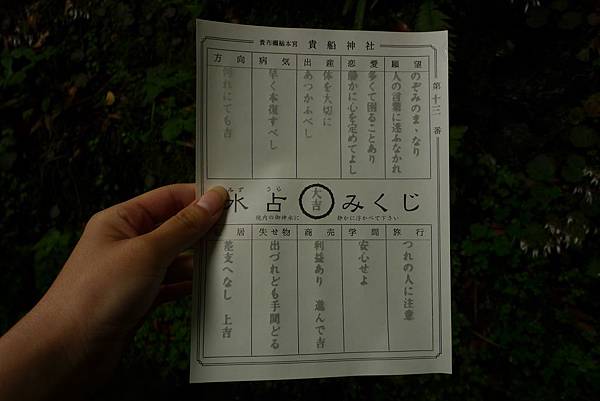 貴布禰総本宮 貴船神社
第十三番
願望
のぞみのまゝなり
人の言葉に迷ふなかれ
恋愛
多くて困ることあり
静かに心を定めてよし
出産
体を大切に
あつかふべし
病気
早く本復すべし
方向
何れにても吉
みず うら
水占 大吉 みくじ
境内の御神水に 静かに浮かべて下さい
旅行
つれの人に注意
学問
安心せよ
商売
利益あり 進んで吉
失せ物
出づれども手間どる
居
差支へなし 上吉